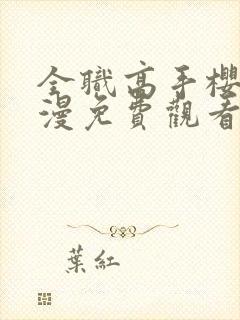 全職高手櫻
漫免費觀看
葉紅